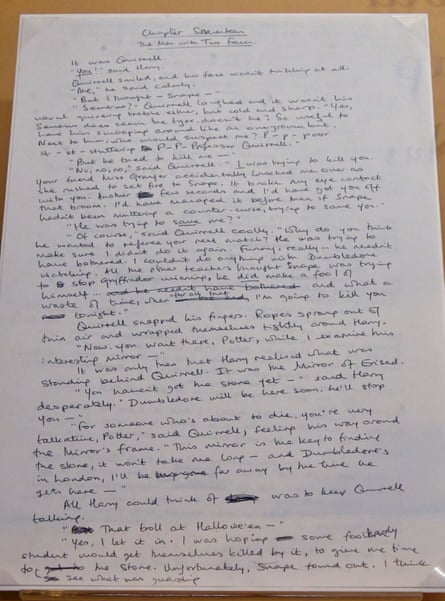 Chapter Seventeen
The Man with Two Faces.
It was Quirrell.
"You!" said Harry.
Quirrell smiled, and his face wasn't twitching at all.
"Me," he said calmly.
"But I thought – Snape –"
"Severus?" Quirrell laughed and it wasn't his
usual quivering treble either, but cold and sharp. "Yes,
Severus does seem the type, doesn't he? So useful to
have him swooping around like an overgrown bat.
Next to him, who would suspect me? P – p – poor
st – st – stuttering P – P – Professor Quirrell."
"But he tried to kill me –"
"No, no, no," said Quirrell. "I was trying to kill you.
Your friend Miss Granger accidentally knocked me over as
she rushed to set fire to Snape. It broke my eye contact
with you. Another few seconds and I'd have got you off
that broom. I'd have managed it before then if Snape
hadn't been muttering a counter-curse, trying to save you."
"He was trying to save me?"
"Of course," said Quirrell coolly. "Why do you think
he wanted to referee your next match? He was trying to
make sure I didn't do it again. Funny, really – he needn't
have bothered. I couldn't do anything with Dumbledore
watching. All the other teachers thought Snape was trying
to stop Gryffindor winning, he did make a fool of
himself ... and he needn't have bothered and what a
waste of time, when after all that, I'm going to kill you
tonight."
Quirrell snapped his fingers. Ropes sprang out of
thin air and wrapped themselves tightly around Harry.
"Now, you wait there, Potter, while I examine this
interesting mirror –"
It was only then that Harry realised what was
standing behind Quirrell. It was the Mirror of Erised.
"You haven't got the stone yet –" said Harry
desperately. "Dumbledore will be here soon, he'll stop
you –"
"For someone who's about to die, you're very
talkative, Potter," said Quirrell, feeling his way around
the Mirror's frame. "This mirror is the key to finding
the stone, it won't take me long – and Dumbledore's
in London, I'll be far away by the time he
gets here –"
All Harry could think of was to keep Quirrell
talking.
"That troll at Hallowe'en –"
"Yes, I let it in. I was hoping some foolhardy
student would get themselves killed by it, to give me time
to get to the stone. Unfortunately, Snape found out. I think
see what was guarding